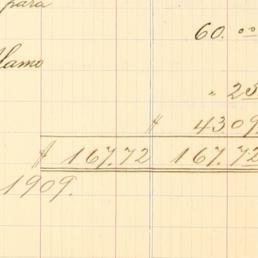 para
60.00
Alamo
" 25
$ 4309
$ 167.72 167.72
1909.